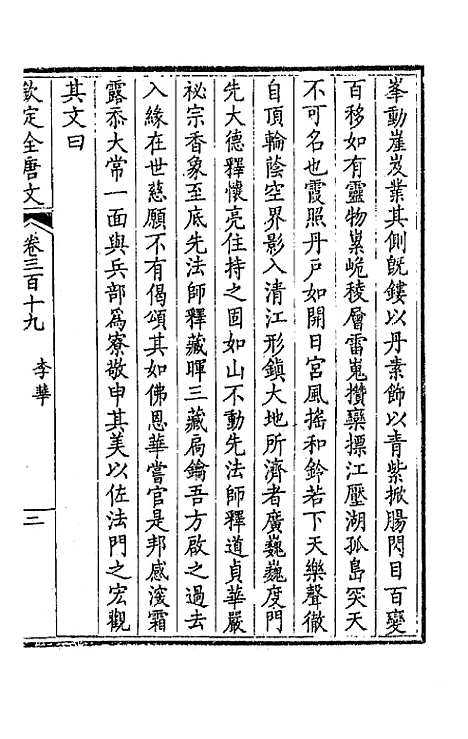 峯動崖岌業其側旣鏤以丹素飾以青紫掀腸閃目百變
百移如有靈物巢峗稜層雷嵬攢欒摽江壓湖孤島突天
不可名也霞照丹戶如開日宮風搖和鈴若下天樂聲徹
自頂輪蔭空界影入清江形鎮大地所濟者廣巍巍度門
先大德釋懷亮住持之固如山不動先法師釋道貞華嚴
祕宗香象至底先法師釋藏暉三藏扃鑰吾方啟之過去
入緣在世慈願不有偈頌其如佛恩華嘗官是邦感深霜
露忝大常一面與兵部爲寮敬申其美以佐法門之宏觀
其文曰
欽定全唐文 卷三百十九 李華 三